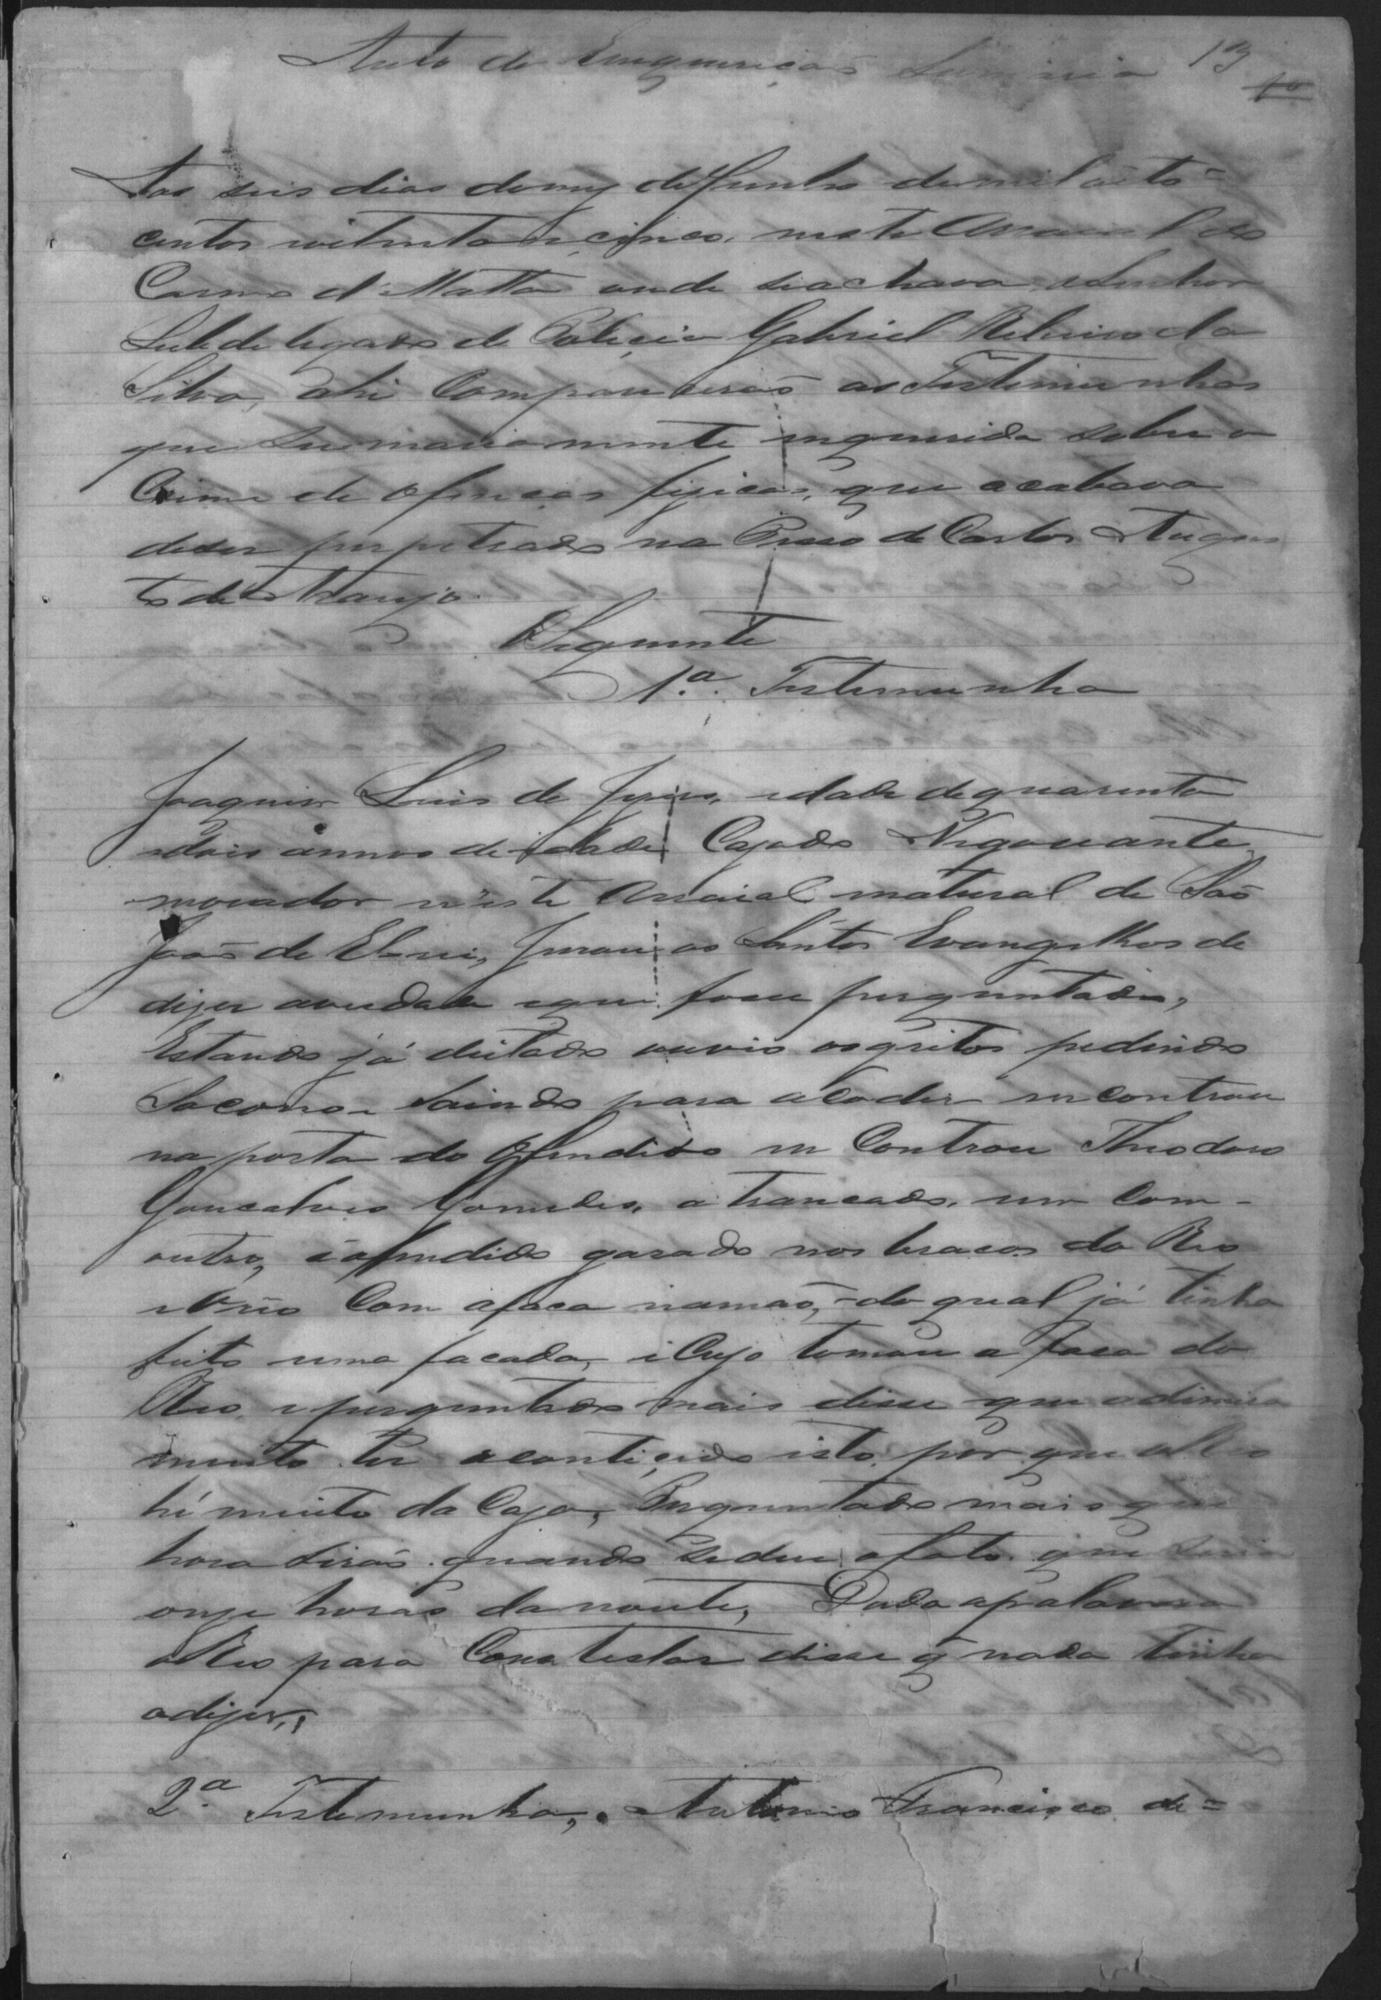 Auto de Enquerição Sumaria 13
Aos seis dias do mez de Junho de mil oito=
centos e oitenta e cinco, neste Arraial do
Carmo d'Matta onde se achava o Senhor
Subdelegado de Policia Gabriel Ribeiro da
Silva, ahi Comparecerão as Testimunhas
que sumariamente inquerida sobre o
Crime de ofencas fizicas, que acabava
de ser perpetrado na Pesso de Carlos Augus
to de Araujo.
O Seguente
1.ª Testemunha
Joaquim Luis de idade de quarenta
e dois annos de idade Cazado Negociante,
morador n'este Arraial natural de São
João de El-rei, Jurou os Santos Evangelhos de
dizer averdade e que fosse perguntado,
Estando já deitado ouvio os gritos pedindo
Socorro e Saindo para acoder encontrou
na porta do ofendido en Controu Theodoro
Goncalves a trancado, um Com-
outro, i ofendido garado nos bracos do Reo
e o Reo Com a faca na mão, do qual já tinha
feito uma facada, i Cujo tomou a faca do
Reo, e perguntado mais disse que adimira
muito ter acontiçido isto por que o Reo
hi muito da Caza, Perguntado mais que
hora sirão quando se deu o fato que seria
onze horas da noute, Dada apalavra
o Reo para Contestar disse q nada tinha
adizer,
2.ª Testemunha, Antonio Francisco de=